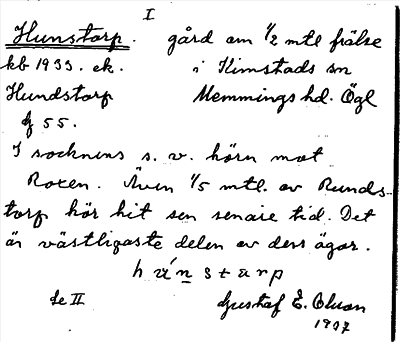 I
Hunstorp. gård om 1/2 mtl frälse
kb 1933. ek. i Kimstads sn
Hundstorp Memmings hd. Ögl
55.
I socknens s. v. hörn mot
Roxen. Även 1/5 mtl. av Runds-
torp hör hit sen senare tid. Det
är västligaste delen av dess ägor.
Gustaf E. Olson